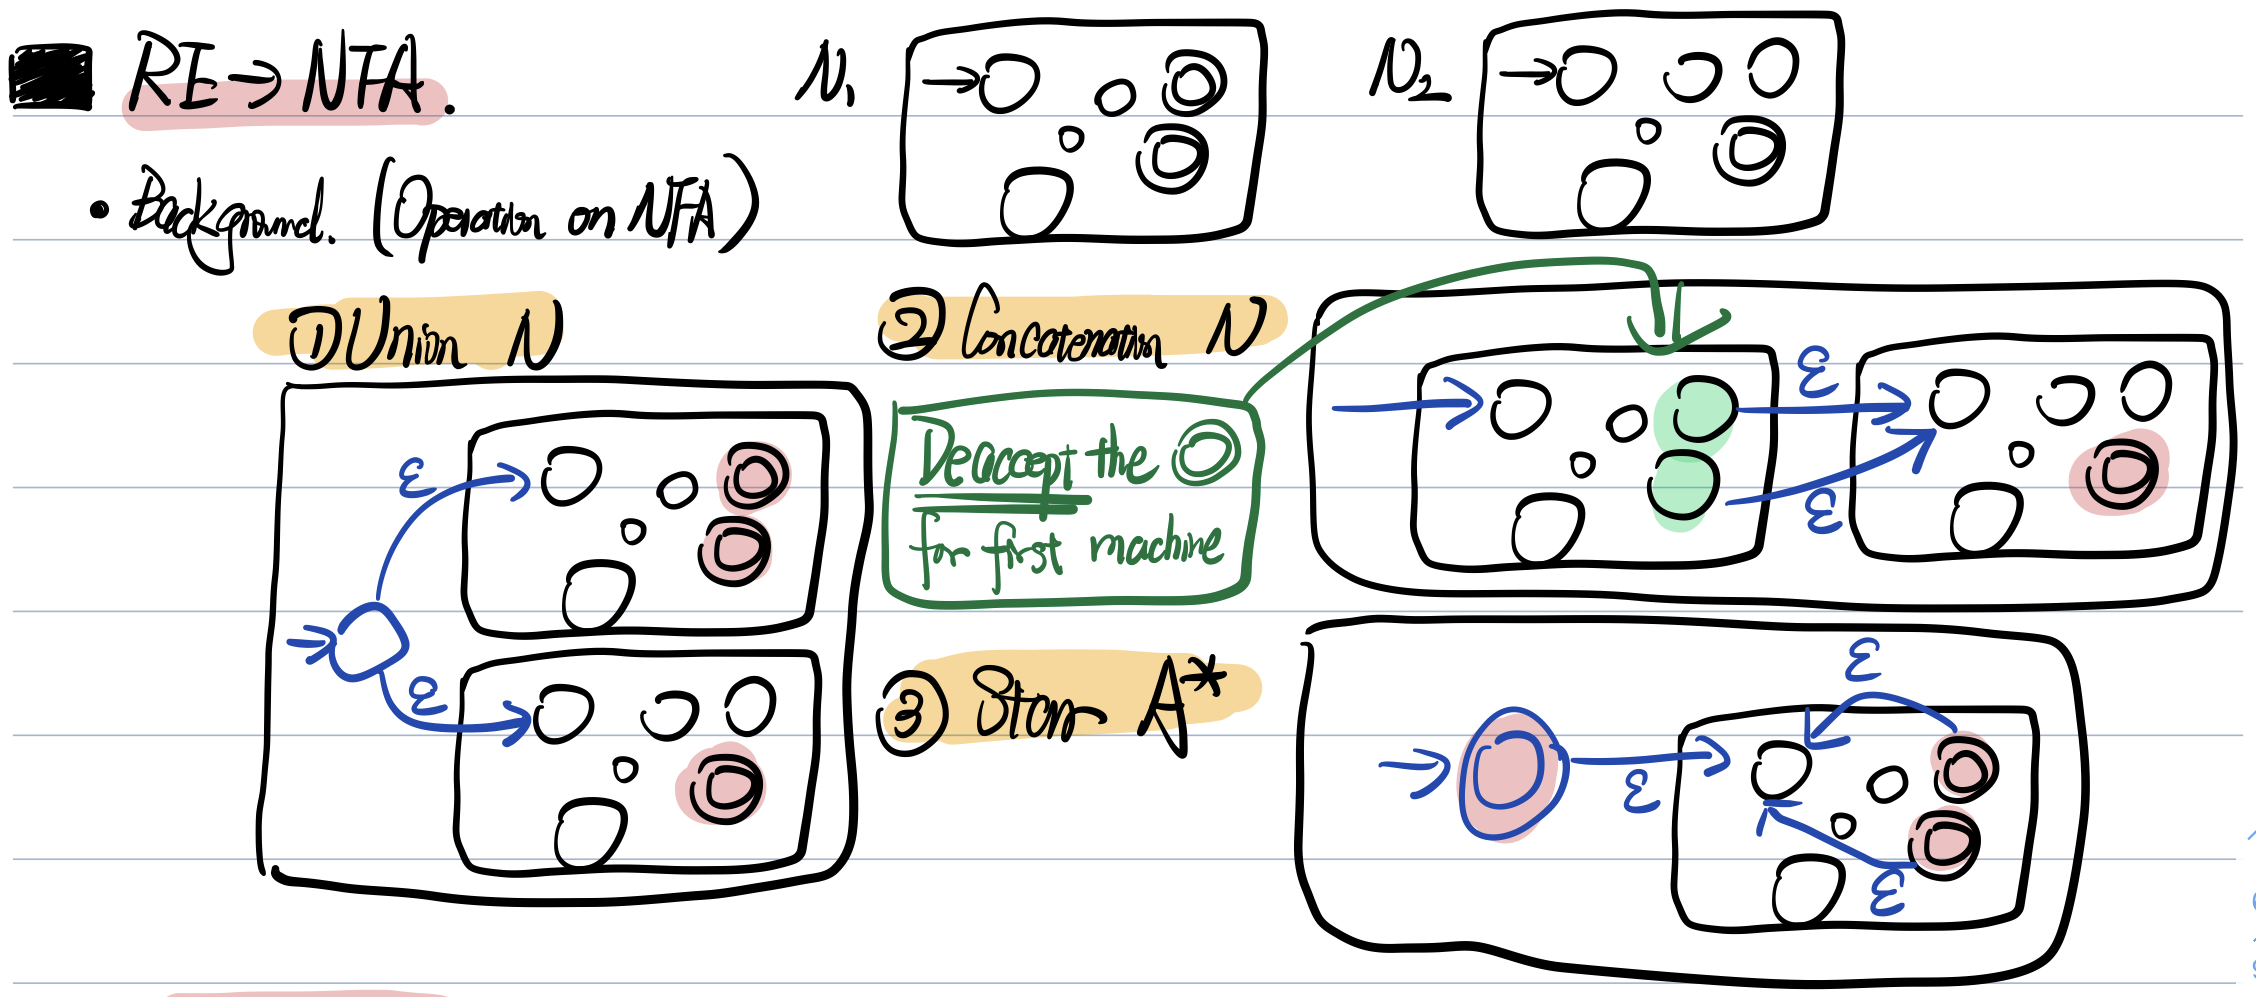 RE→NFA.
N₁
N₂
• Background. (Operation on NFA)
① Union N
② Concatenation N
Deaccept the
for first machine
③ Star A*
ε
ε
ε
ε
ε
ε
ε